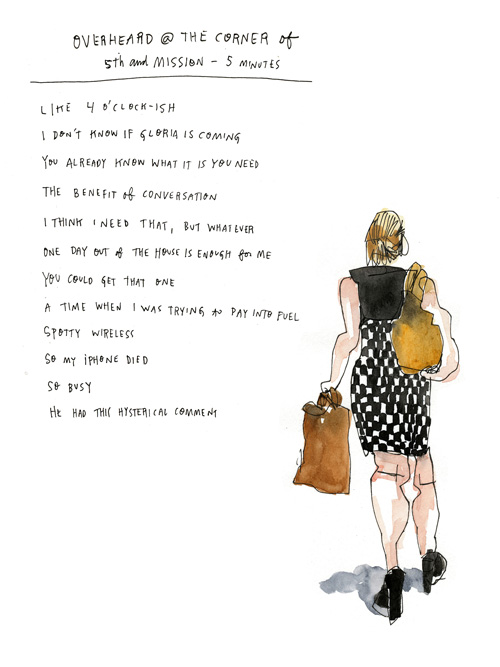 OVERHEARD @ THE CORNER of
5th and MISSION - 5 MINUTES
LIKE 4 O'CLOCK-ISH
I DON'T KNOW IF GLORIA IS COMING
YOU ALREADY KNOW WHAT IT IS YOU NEED
THE BENEFIT of CONVERSATION
I THINK I NEED THAT, BUT WHATEVER
ONE DAY OUT of THE HOUSE IS ENOUGH for ME
YOU COULD GET THAT ONE
A TIME WHEN I WAS TRYING to PAY INTO FUEL
SPOTTY WIRELESS
SO MY iPHONE DIED
SO BUSY
HE HAD THIS HYSTERICAL COMMENT